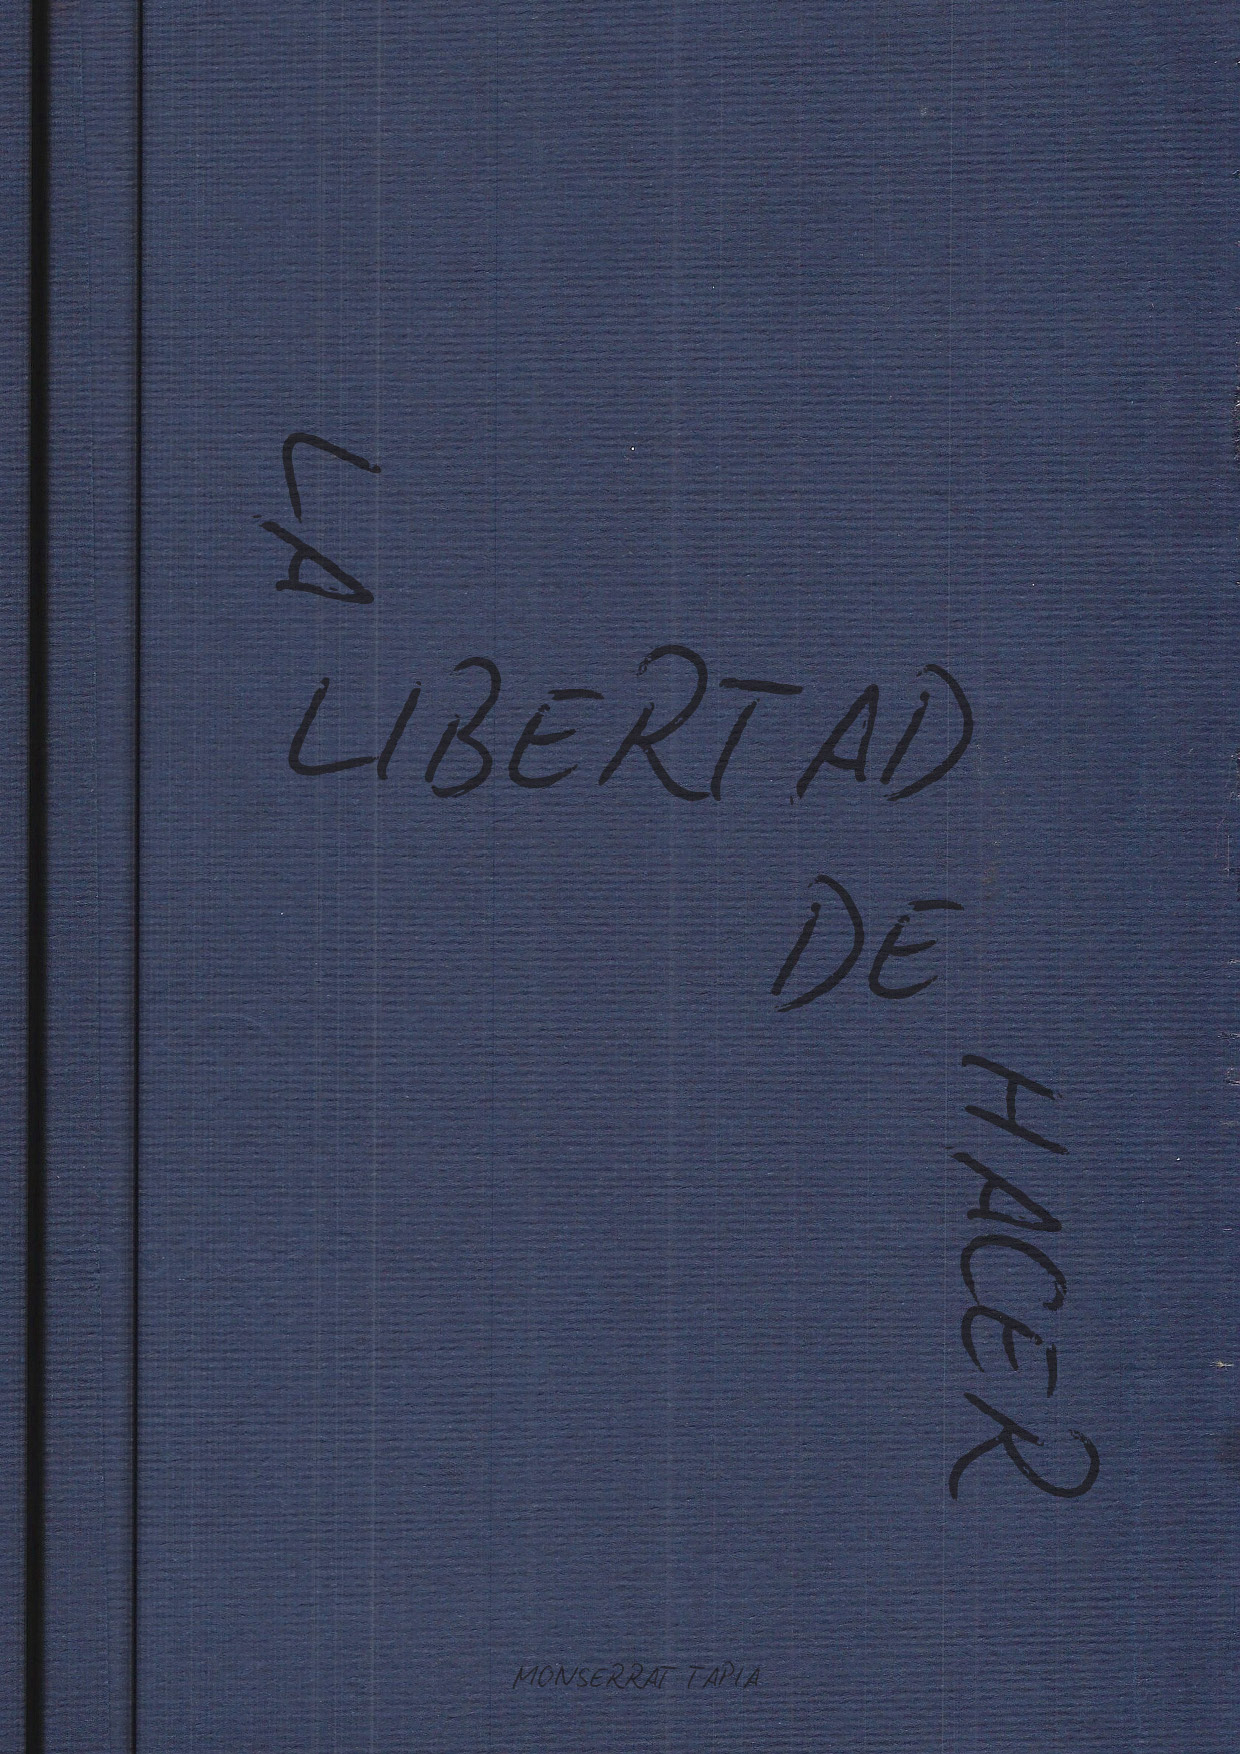 LA
LIBERTAD
DE
HACER
MONSERRAT TAPIA